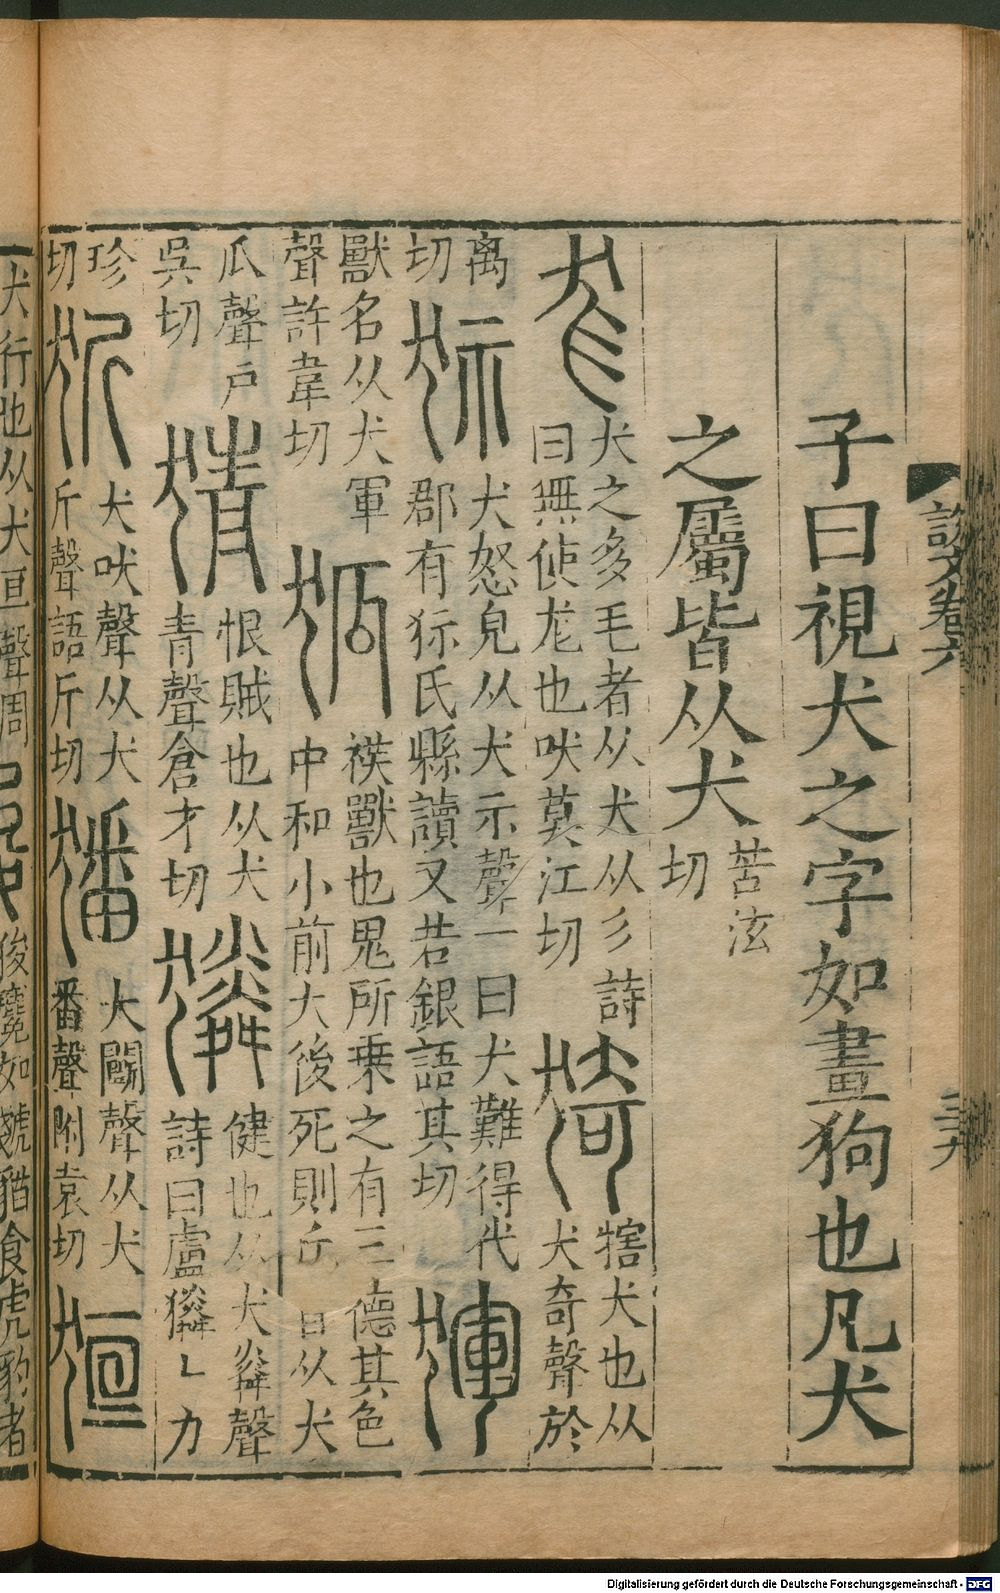 說文卷六
子曰視犬之字如畫狗也凡犬
之屬皆从犬苦泫切
尨犬之多毛者从犬从彡詩曰無使尨也吠莫江切猗犗犬也从犬奇聲於
离切狋犬怒皃从犬示聲一曰犬難得代郡有狋氏縣讀又若銀語其切㹆
獸名从犬軍聲許韋切狐䄏獸也鬼所乗之有三德其色中和小前大後死則丘从犬
瓜聲戶吳切猜恨賊也从犬青聲倉才切獜健也从犬粦聲詩曰盧獜獜力
珍切㹞犬吠聲从犬斤聲語斤切㺕犬鬭聲从犬番聲附袁切狟
犬行也从犬亘聲周狻麑如虦貓食虎豹者
Digitalisierung gefördert durch die Deutsche Forschungsgemeinschaft - DFG